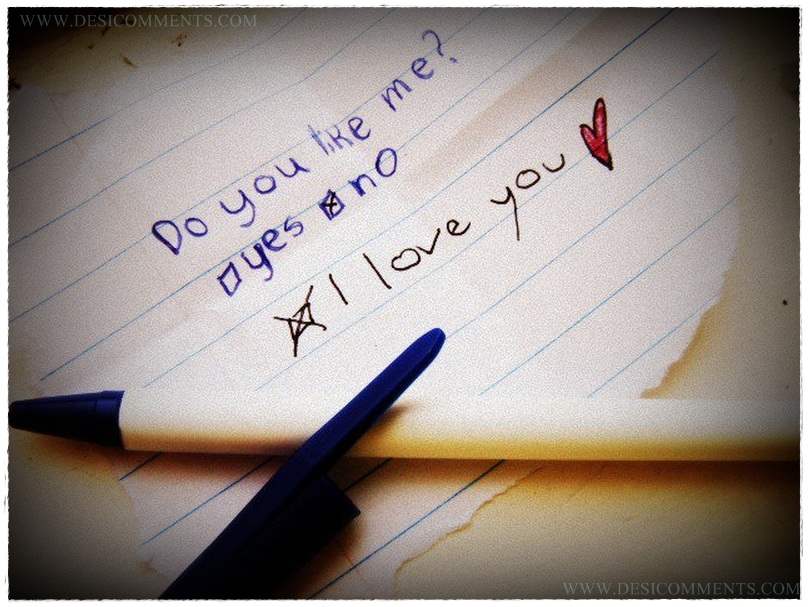 WWW.DESICOMMENTS.COM
Do you like me?
yes no
I love you
WWW.DESICOMMENTS.COM